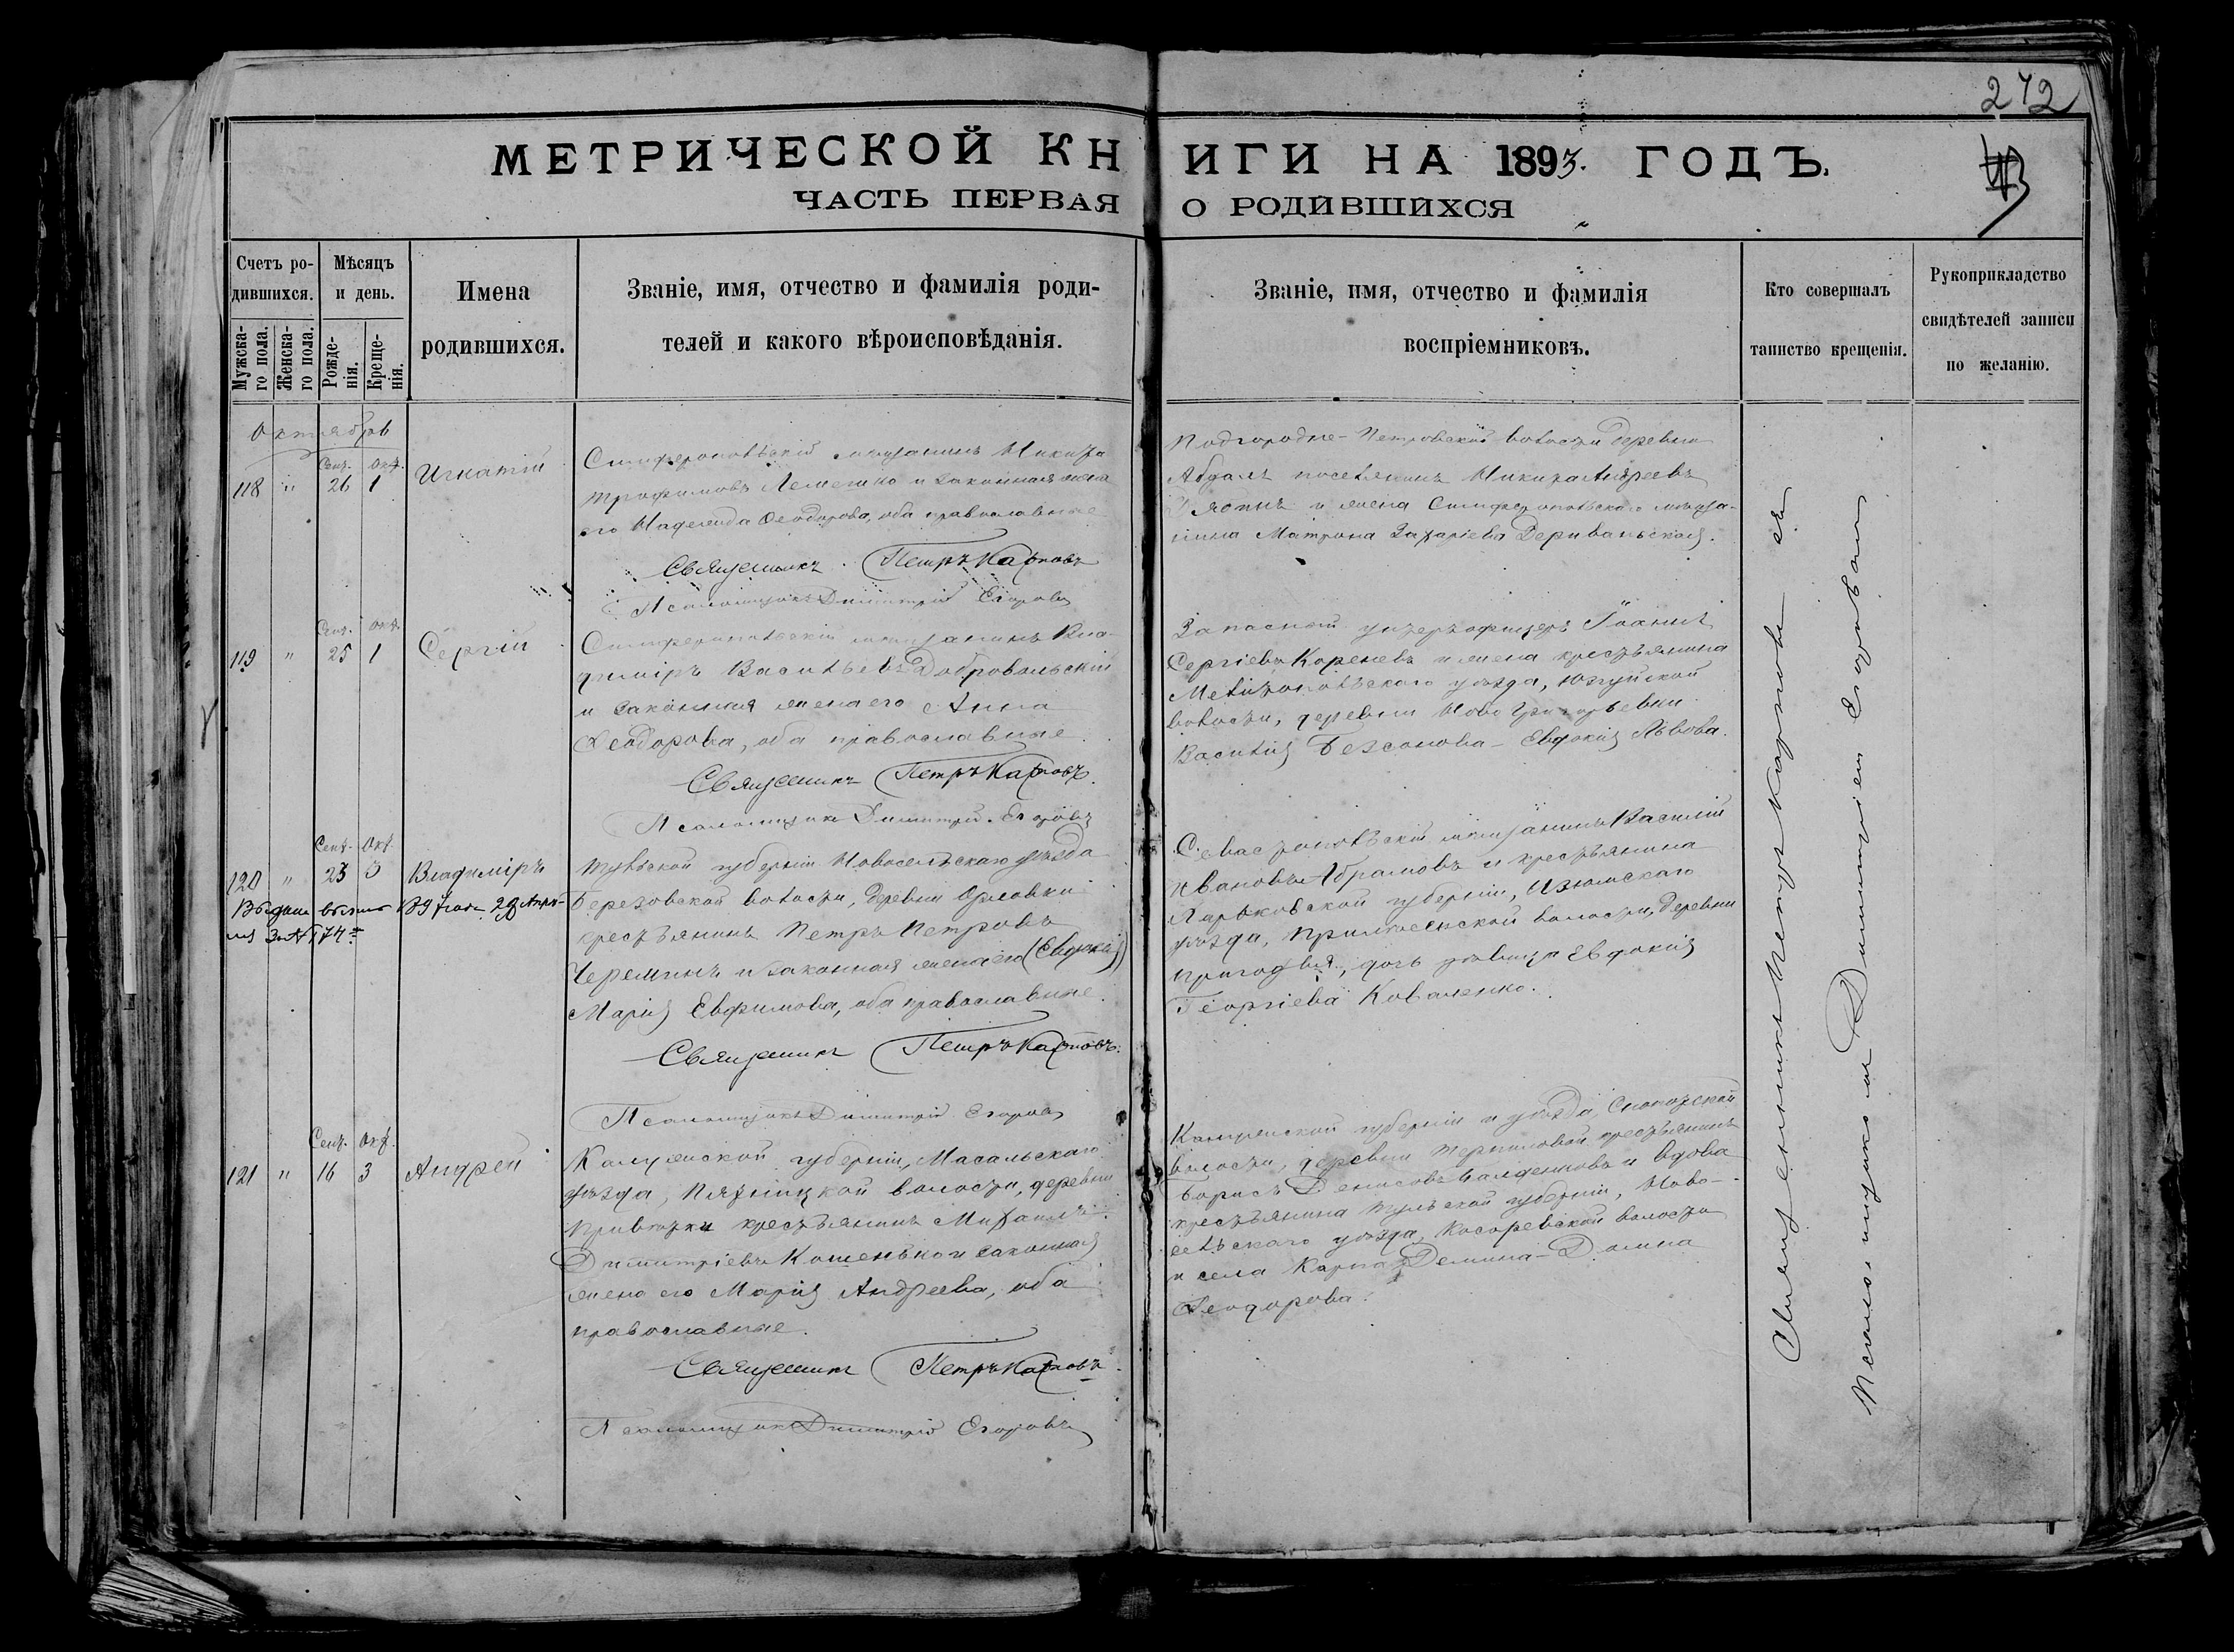 242
МЕТРИЧЕСКОЙ КНИГИ НА 1893. ГОДЪ.
ЧАСТЬ ПЕРВАЯ О РОДИВШИХСЯ
Счетъ ро-
дившихся.
Мужска-
го пола.
Женска-
го пола.
Мѣсяцъ
и день.
Рожде-
нія.
Креще-
нія.
Имена
родившихся.
Званіе, имя, отчество и фамилія роди-
телей и какого вѣроисповѣданія.
Званіе, имя, отчество и фамилія
воспріемниковъ.
Кто совершалъ
таинство крещенія.
Рукоприкладство
свидѣтелей записи
по желанію.
Октябрь
Сент. Окт.
118 " 26 1 Игнатій
Симферопольскій мѣщанинъ Никита
Трофимовъ Лемешко и законная жена
его Надежда Ѳеодорова, оба православные
Священникъ Петръ Карповъ
Псаломщикъ Димитрій Егоровъ
Подгородне-Петровской волости деревни
Абдалъ поселянинъ Никита Андреевъ
и жена Симферопольскаго мѣща-
нина Матрона Захаріева
Сент. Окт.
119 " 25 1 Сергій
Симферопольскій мѣщанинъ Вла-
диміръ Васильевъ Добровольскій
и законная жена его Анна
Ѳеодорова, оба православные.
Священникъ Петръ Карповъ.
Псаломщикъ Димитрій Егоровъ
Запасный унтеръ офицеръ Іоаннъ
Сергіевъ Кореневъ и жена крестьянина
Мелитопольскаго уѣзда, Юзкуйской
волости, деревни Ново Григорьевки
Василія Безсонова - Евдокія Львова.
Сент. Окт.
120 " 23 3 Владиміръ
Выдана выпись 189 года 29 Апрѣ-
ля за № 174
Тульской губерніи Новосельскаго уѣзда
Березовской волости, деревни Орловки
крестьянинъ Петръ Петровъ
Черемшинъ и законная жена его (Евдокія)
Марія Евфимова, оба православные.
Священникъ Петръ Карповъ.
Псаломщикъ Димитрій Егоровъ
Севастопольскій мѣщанинъ Василій
Ивановъ Абрамовъ и крестьянина
Харьковской губерніи, Изюмскаго
уѣзда, волости, деревни
дочь дѣвица Евдокія
Георгіева Коваленко.
Сент. Окт.
121 " 16 3 Андрей
Калужской губерніи, Масальскаго
уѣзда, Пятницкой волости, деревни
крестьянинъ Михаилъ
Димитріевъ Кошенько и законная
жена его Марія Андреева, оба
православные.
Священникъ Петръ Карповъ
Псаломщикъ Димитрій Егоровъ
Калужской губерніи и уѣзда,
волости, деревни крестьянинъ
Борисъ Денисовъ и вдова
крестьянина Тульской губерніи, Ново-
сельскаго уѣзда, Косоревской волости
и села Демина - Домна
Ѳеодорова.
Священникъ Петръ Карповъ съ
Псаломщикомъ Димитріемъ Егоровымъ